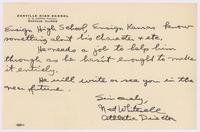 DANVILLE HIGH SCHOOL
DANVILLE, ILLINOIS
Ensign High School, Ensign Kansas know
something about his character, etc.
He needs a job to help him
through as he hasn't enough to make
it entirely.
He will write or see you in the
near future.
Sincerely,
Ned Whitesell
Athletic Director